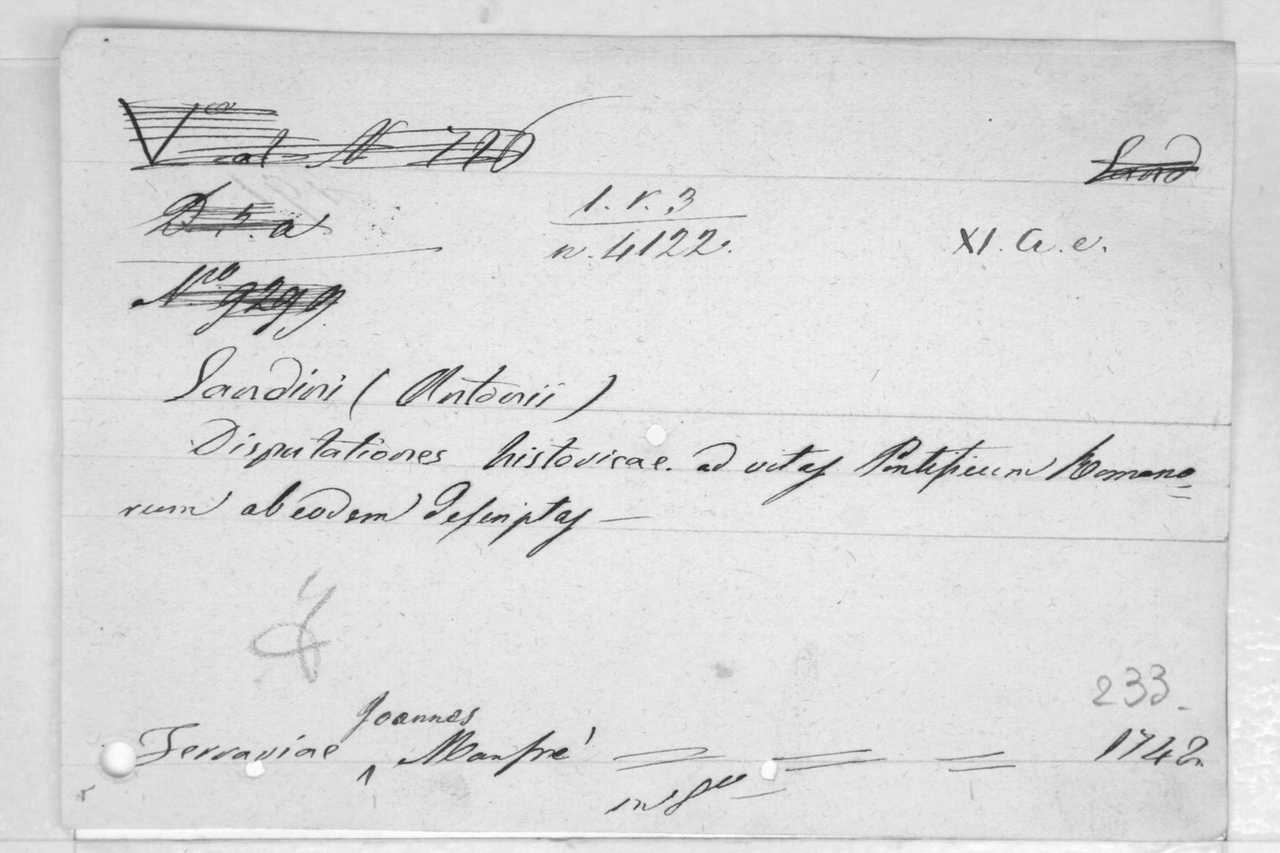 Vca
cat N 726
Sand
D. 5. a
1. r. 3
n. 4122.
XI. a. e.
Nro 9299
Sandini (Antonii)
Disputationes historicae ad vitas Pontificum Romano=
rum ab eodem descriptas —
233.
Joannes
Ferrariae Manfré 1742.
in 8vo